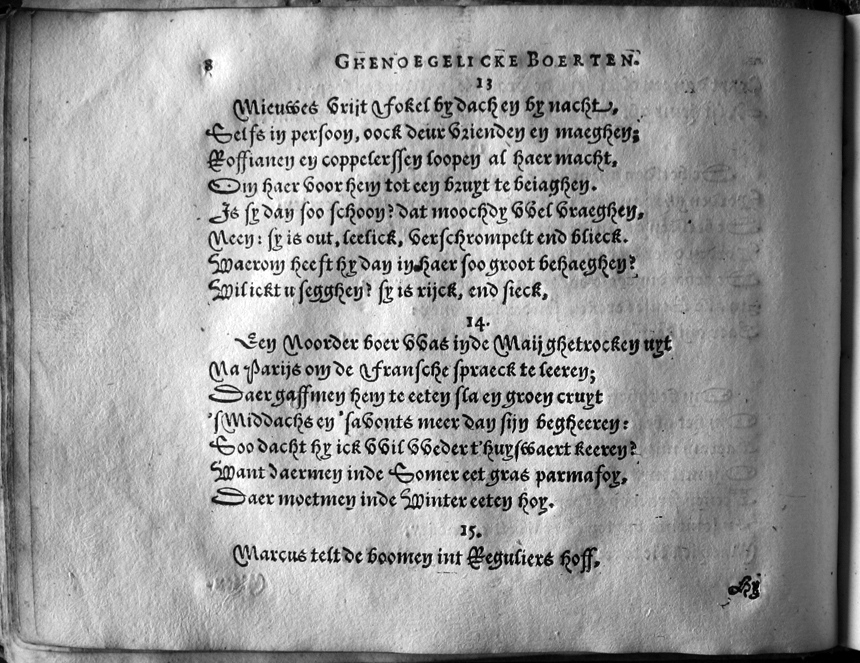 8 GHENOEGELICKE BOERTEN.
13
Mieuwes vrijt Fokel by dach en by nacht,
Selfs in persoon, oock deur vrienden en maeghen;
Roffianen en coppelerssen loopen al haer macht,
Om haer voor hem tot een bruyt te beiaghen.
Is sy dan soo schoon? dat moochdy vvel vraeghen,
Neen: sy is out, leelick, verschrompelt end bleeck.
Waerom heeft hy dan in haer soo groot behaeghen?
Wil ickt u segghen? sy is rijck, end sieck,
14.
Een Noorder boer vvas inde Maij ghetrocken uyt
Na Parijs om de Fransche spraeck te leeren;
Daer gaffmen hem te eeten sla en groen cruyt
'sMiddachs en 'savonts meer dan sijn begheeren:
Soo dacht hy ick vvil vveder t'huyswaert keeren?
Want daermen inde Somer eet gras parmafoy,
Daer moetmen inde Winter eeten hoy.
15.
Marcus telt de boomen int Reguliers hoff,
Hy